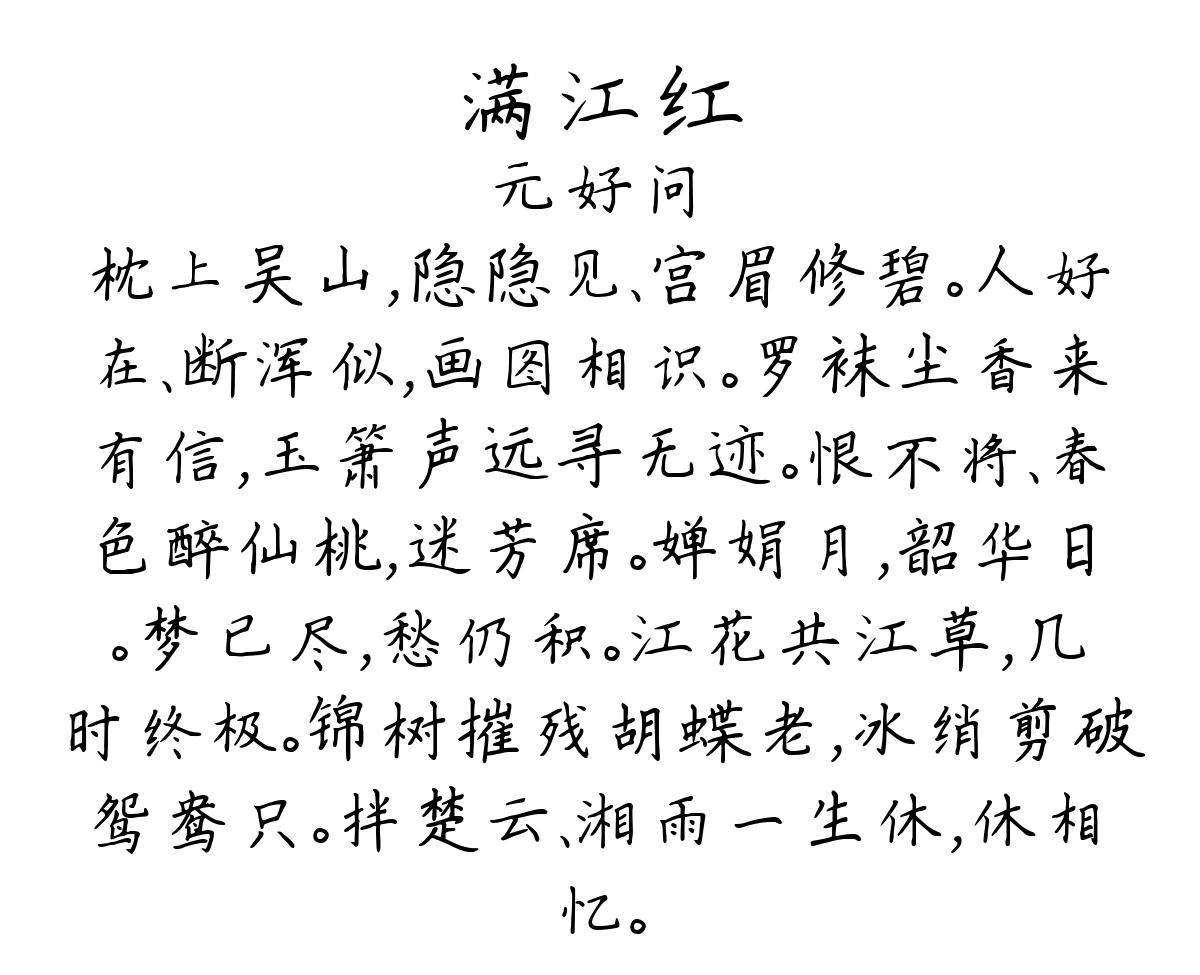 满江红
元好问
枕上吴山,隐隐见、宫眉修碧。人好
在、断浑似,画图相识。罗袜尘香来
有信,玉箫声远寻无迹。恨不将、春
色醉仙桃,迷芳席。婵娟月,韶华日
。梦已尽,愁仍积。江花共江草,几
时终极。锦树摧残胡蝶老,冰绡剪破
鸳鸯只。拌楚云、湘雨一生休,休相
忆。